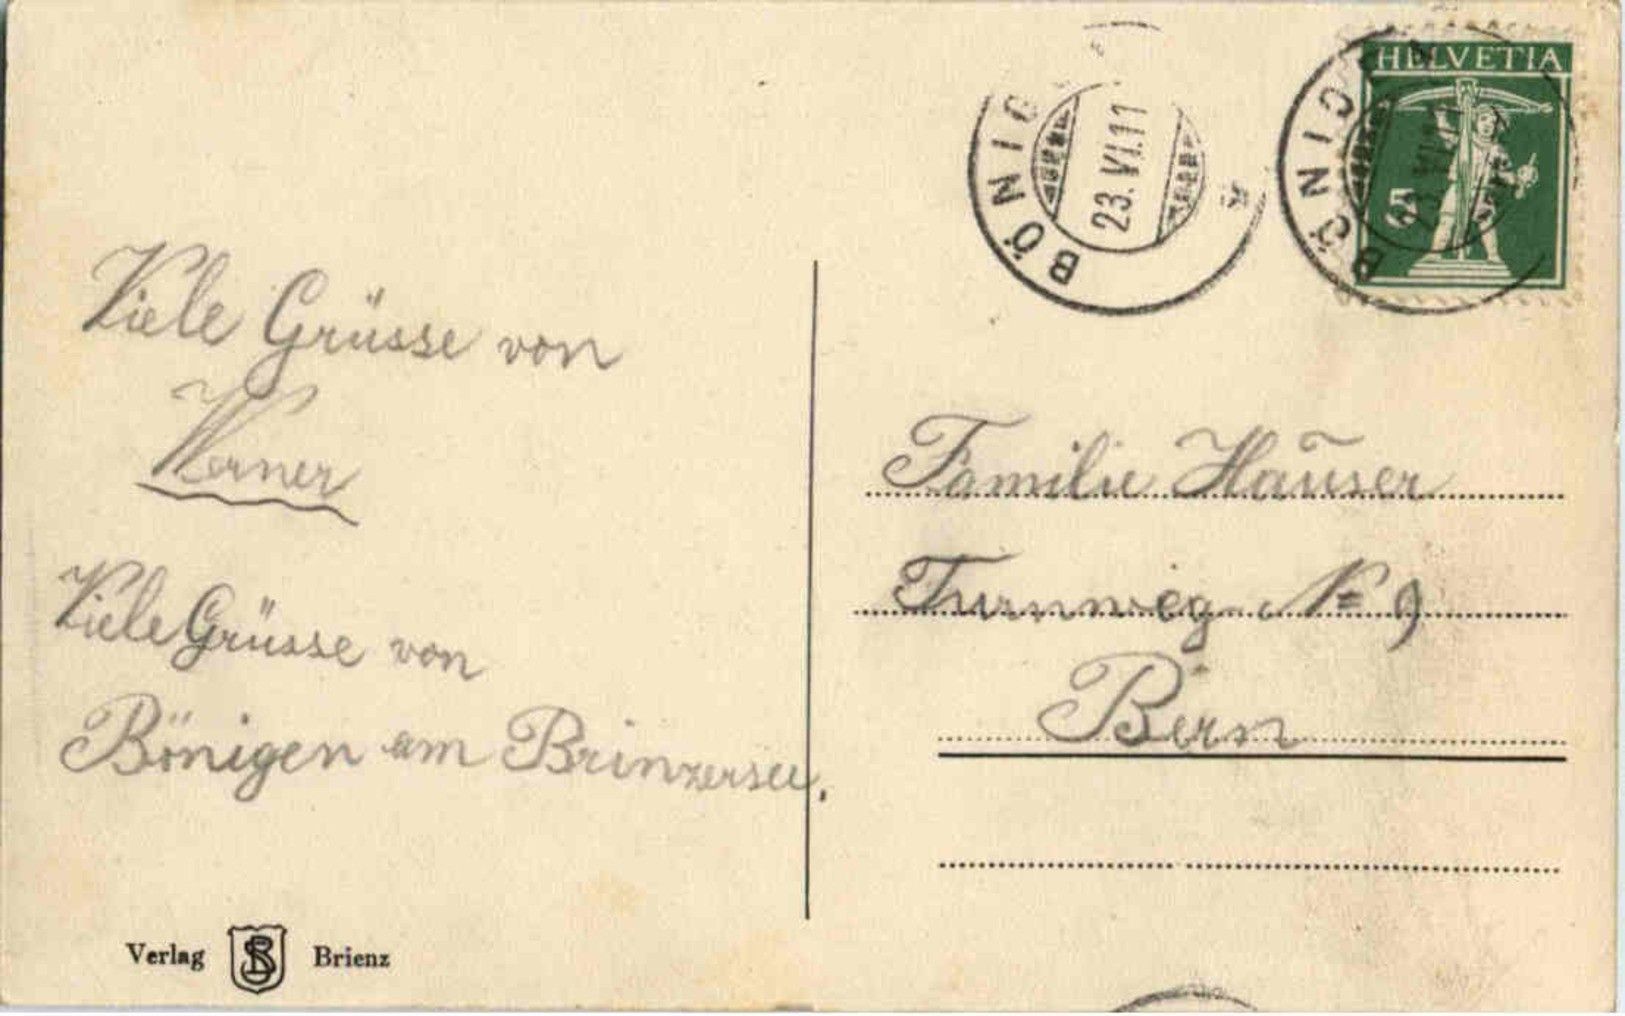 Viele Grüsse von
Werner
Viele Grüsse von
Bönigen am Brinzersee.
Verlag SB Brienz
BÖNIG
23.VI.11
HELVETIA
5
BÖNIGEN
Familie Hauser
Turnweg N= 9
Bern